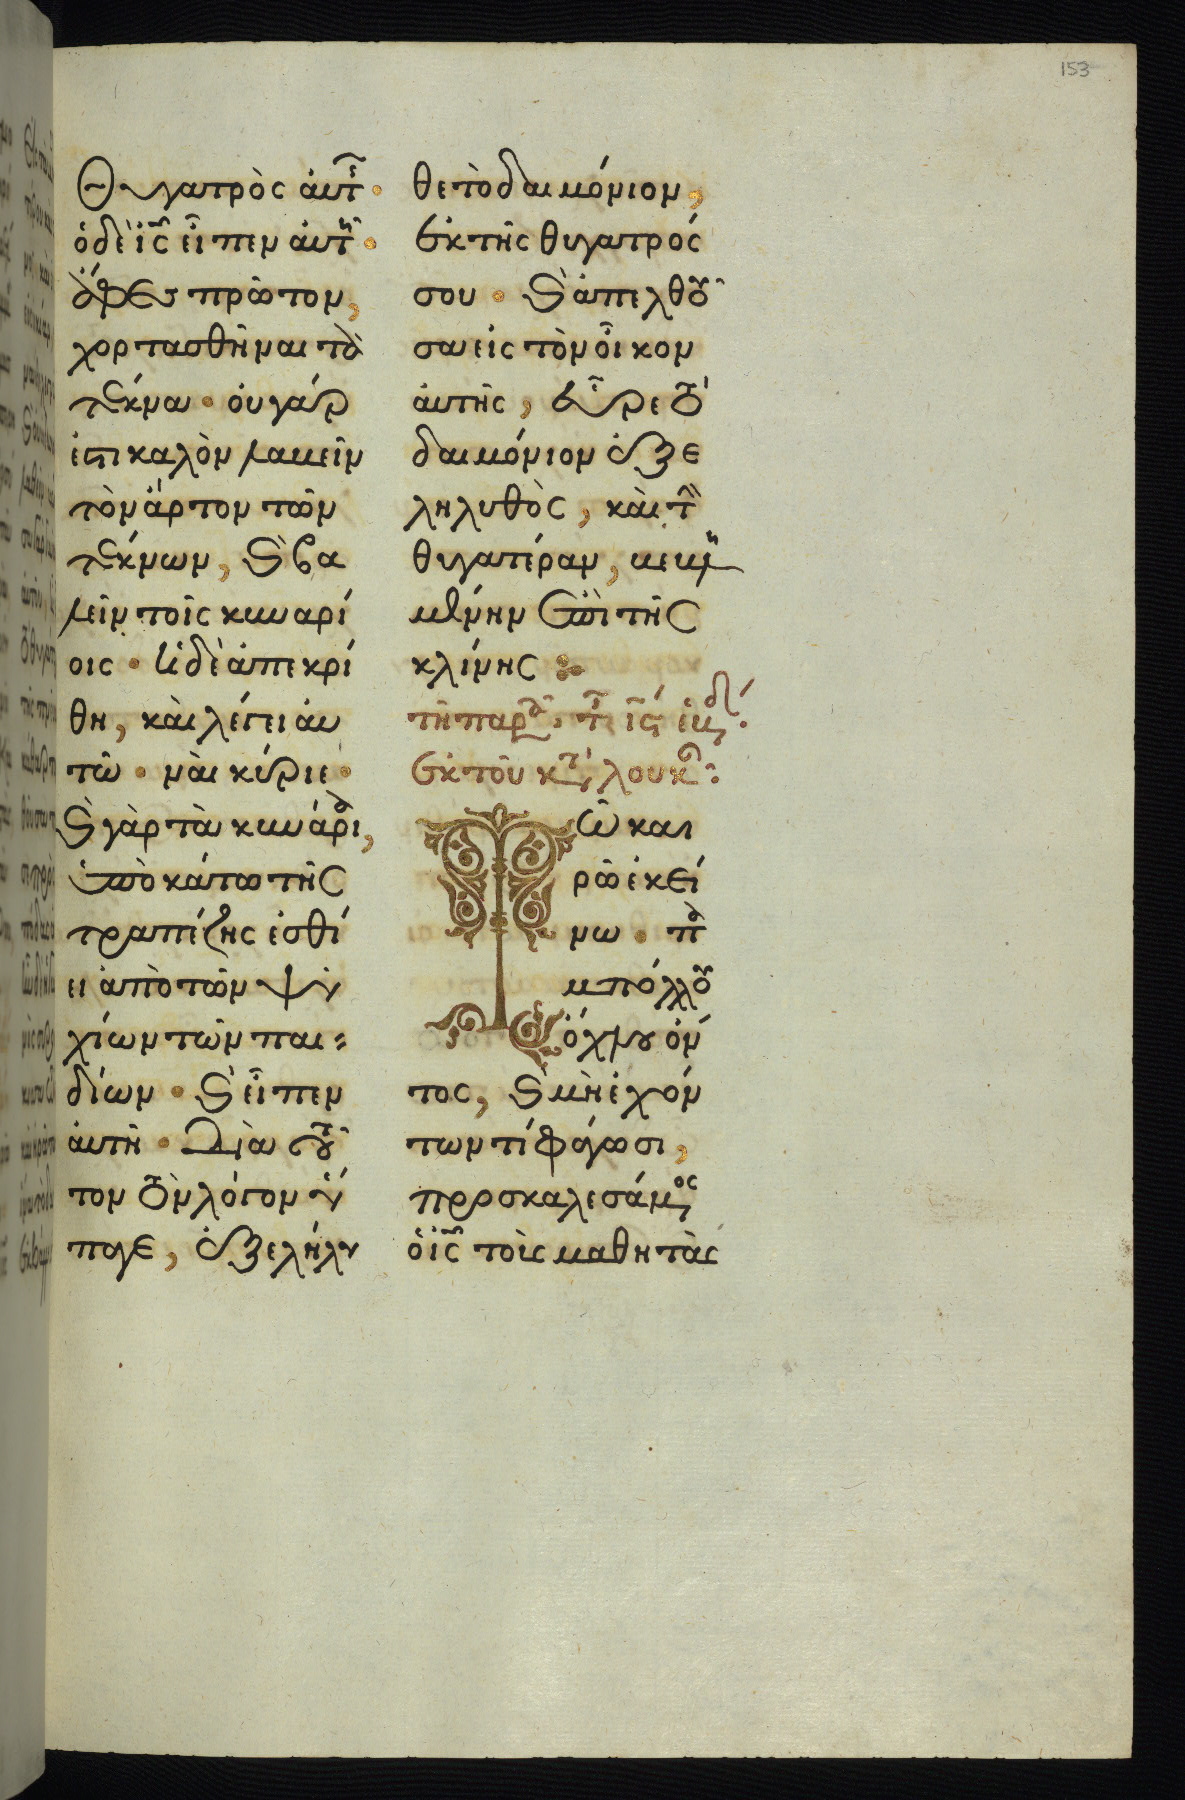 153
θυγατρὸς ἀυτῆς·
ὁ δὲ ι̅ς̅ εἶπεν ἀυτῆ·
ἄφες πρῶτον,
χορτασθῆναι τὰ
τέκνα· ὀυ γάρ
ἐστι καλὸν λαβεῖν
τὸν ἄρτον τῶν
τέκνων, καὶ βα
λεῖν τοῖς κυναρί
οις· ἡ δὲ ἀπεκρί
θη, καὶ λέγει ἀυ
τῶ· ναὶ κύριε·
καὶ γὰρ τὰ κυνάρια,
ὑποκάτω τῆς
τραπέζης ἐσθί
ει ἀπὸ τῶν ψι
χίων τῶν παι
δίων· καὶ εἶπεν
ἀυτῆ· διὰ τοῦ
τον τὸν λόγον ὕ
παγε, ἐξελήλυ
θε τὸ δαιμόνιον,
ἐκ τῆς θυγατρός
σου· καὶ ἀπελθοῦ
σα εἰς τὸν οἶκον
ἀυτῆς, εὗρε τό
δαιμόνιον ἐξε
ληλυθὸς, καὶ τὴν
θυγατέραν, βεβλη
μένην ἐπὶ τῆς
κλίνης:
τῆ παρα τῆς ις ἑβδ.
ἐκ τοῦ κατὰ λουκᾶν:
Τῶ και
ρῶ ἐκεί
νω· πα
μπόλλου
ὄχλου ὄν
τος, καὶ μὴ ἐχόν
των τί φάγωσι,
προσκαλεσάμενος
ὁ ι̅ς̅ τοὺς μαθητὰς